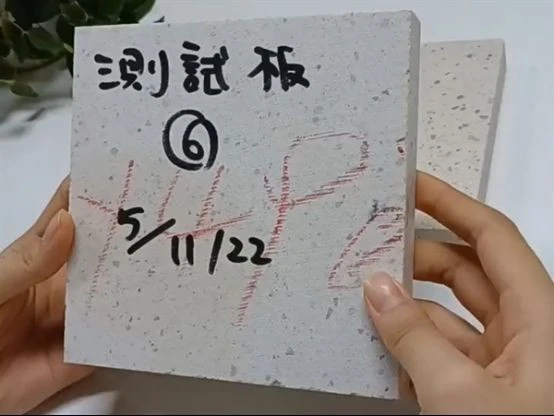 測試板
⑥
5/11/22